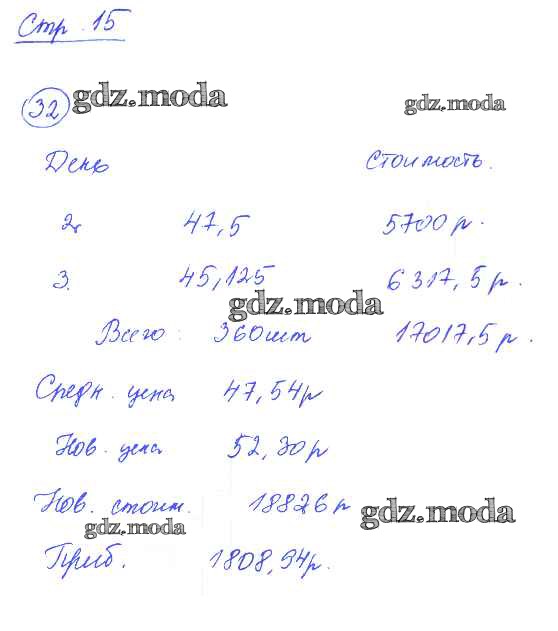 Стр. 15
32 gdz.moda gdz.moda
День Стоимость.
2. 47,5 5700 р.
3. 45,125 6317,5 р.
gdz.moda
Всего: 360шт 17017,5 р.
Средн. цена 47,54р
Нов. цена 52,30р
Нов. стоим. 18826 р gdz.moda
gdz.moda
Приб. 1808,94р.